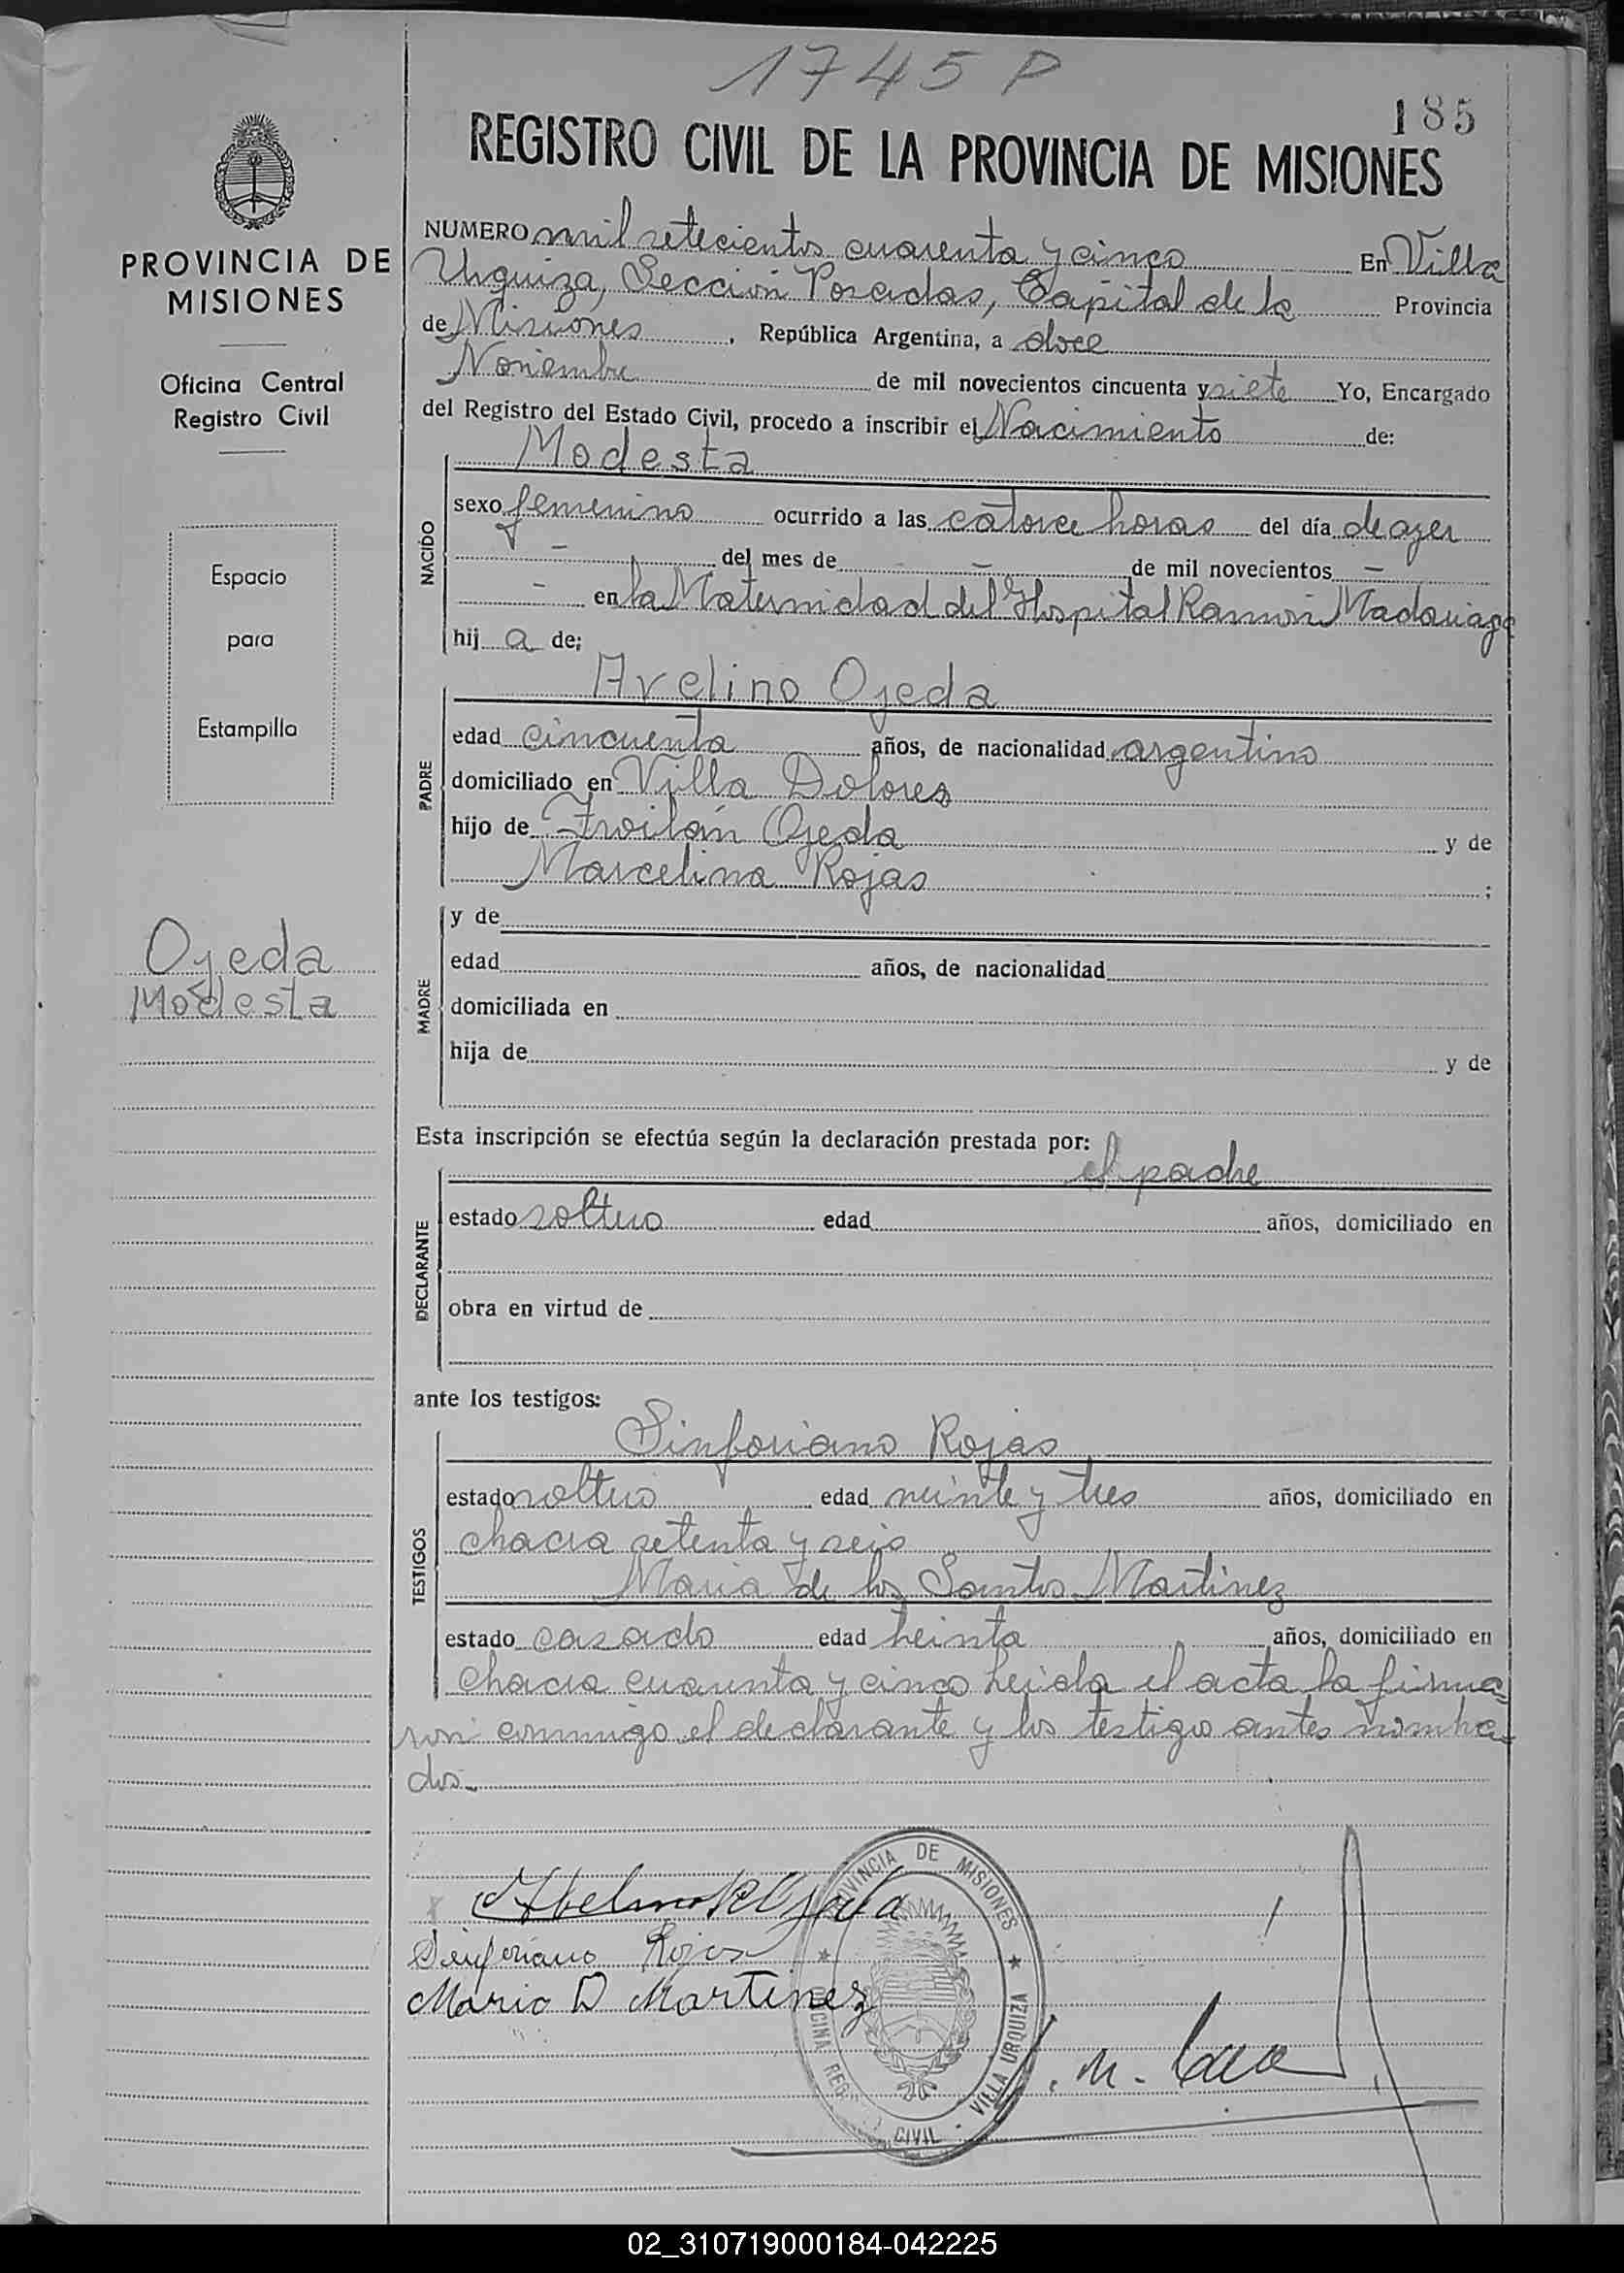 1745 P
185
REGISTRO CIVIL DE LA PROVINCIA DE MISIONES
PROVINCIA DE
MISIONES
Oficina Central
Registro Civil
Espacio
para
Estampilla
Ojeda
Modesta
NUMERO mil setecientos cuarenta y cinco En Villa
Urquiza, Seccion Posadas, Capital de la Provincia
de Misiones, República Argentina, a doce
Noviembre de mil novecientos cincuenta y siete Yo, Encargado
del Registro del Estado Civil, procedo a inscribir el Nacimiento de:
Modesta
NACIDO
sexo femenino ocurrido a las catorce horas del día de ayer
- del mes de - de mil novecientos -
- en la Maternidad del Hospital Ramón Madariaga
hij a de:
Avelino Ojeda
PADRE
edad cincuenta años, de nacionalidad argentino
domiciliado en Villa Dolores
hijo de Froilán Ojeda y de
Marcelina Rojas ;
MADRE
y de
edad años, de nacionalidad
domiciliada en
hija de y de
Esta inscripción se efectúa según la declaración prestada por:
el padre
DECLARANTE
estado soltero edad años, domiciliado en
obra en virtud de
ante los testigos:
Sinforiano Rojas
TESTIGOS
estado soltero edad veinte y tres años, domiciliado en
chacra setenta y seis
Maria de los Santos Martinez
estado casado edad treinta años, domiciliado en
chacra cuarenta y cinco leida el acta la firma-
ron conmigo el declarante y los testigos antes nombra-
dos.-
Sinforiano Rojas
Mario D Martinez
PROVINCIA DE MISIONES
OFICINA REG. CIVIL - VILLA URQUIZA
02_310719000184-042225